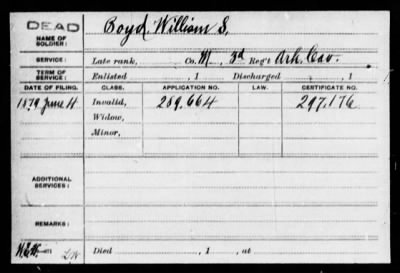 DEAD
NAME OF SOLDIER: Boyd, William S.
SERVICE: Late rank, Co. M, 3d Reg't Ark. Cav.
TERM OF SERVICE: Enlisted , 1 Discharged , 1
DATE OF FILING. CLASS. APPLICATION NO. LAW. CERTIFICATE NO.
1879 June 14 Invalid, 289.664 297.176
Widow,
Minor,
ADDITIONAL SERVICES:
REMARKS:
Died , 1 , at